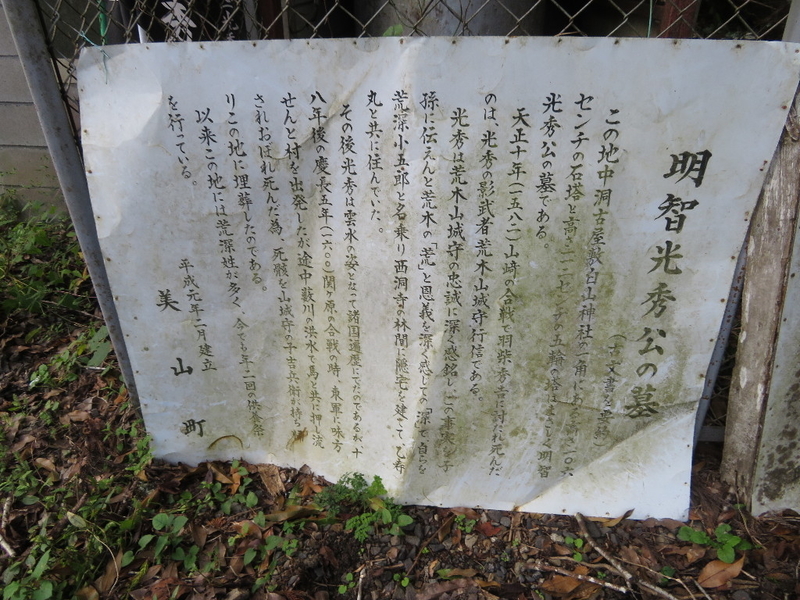 明智光秀公の墓
(古文書を要約)
この地中洞古屋敷白山神社の一角にある高さ一〇六
センチの石塔と高さ一二七センチの五輪の塔はまさしく明智
光秀公の墓である。
天正十年(一五八二)山崎の合戦で羽柴秀吉に討たれ死んだ
のは、光秀の影武者荒木山城守行信である。
光秀は荒木山城守の忠誠に深く感銘しこの事実を子
孫に伝えんと荒木の「荒」と恩義を深く感じての「深」で自らを
荒深小五郎と名乗り西洞寺の林間に隠宅を建てて乙寿
丸と共に住んでいた。
その後光秀は雲水の姿となって諸国遍歴にでたのであるが、十
八年後の慶長五年(一六〇〇)関ヶ原の合戦の時、東軍に味方
せんと村を出発したが途中藪川の洪水で馬と共に押し流
されおぼれ死んだ為、死骸を山城守の子吉兵衛が持ち
りこの地に埋葬したのである。
以来この地には荒深姓が多く、今でも年二回の供養祭
を行っている。
平成元年一月建立
美山町